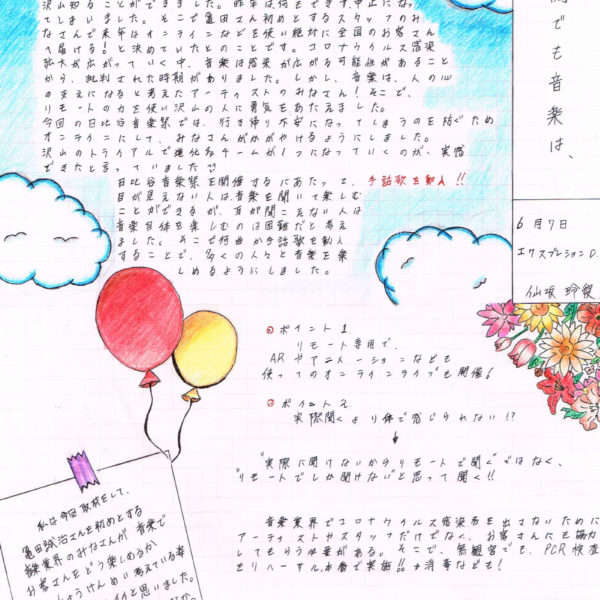 沢山知ることができました。昨年は何もできず中止になっ
てしまいました。そこで亀田さん初めとするスタッフのみ
なさんで来年はオンラインなどを使い絶対に全国のお客さん
へ届ける!と決めていたとのことです。コロナウイルス感染
拡大が広がっていく中、音楽は感染が広がる可能性があること
から、批判された時期がありました。しかし、音楽は、人の心
の支えになると考えたアーティストのみなさん!そこで、
リモートの力を使い沢山の人に勇気をあたえました。
今回の日比谷音楽祭では、行き帰り不安になってしまうのを防ぐため
オンラインにして、みなさんがかがやけるようにしました。
沢山のトライアルで進化をチームが1つになっていくのが、実感
できたと言っていました
日比谷音楽祭を開催するにあたって、手話歌を動入!!
目が見えない人は音楽を聞いて楽しむ
ことができるが、耳が聞こえない人は
音楽自体を楽しむのは困難だと考え
ました。そこで何曲か手話歌を動入
することで、多くの人々と音楽を楽
しめるようにしました。
でも音楽は、
6月7日
エクスプレッションD.
仙坂
ポイント1
リモート専用で、
ARやアニメーションなども
使ってのオンラインライブも開催!
ポイント2
実際聞くより体で感じられない!?
↓
"実際に聞けないからリモートで聞く"ではなく、
"リモートでしか聞けない"と思って聞く!!
音楽業界でコロナウイルス感染者を出さないために
アーティストやスタッフだけでなく、お客さんにも協力
してもらう必要がある。そこで、無観客でも、PCR検査
をリハーサル、本番で実施!!+消毒なども!
私は今回取材をして、
亀田誠治さんを初めとする
音楽業界のみなさんが音楽で
お客さんをどう楽しめるか
しょうけんめい考えている事
と思いました。